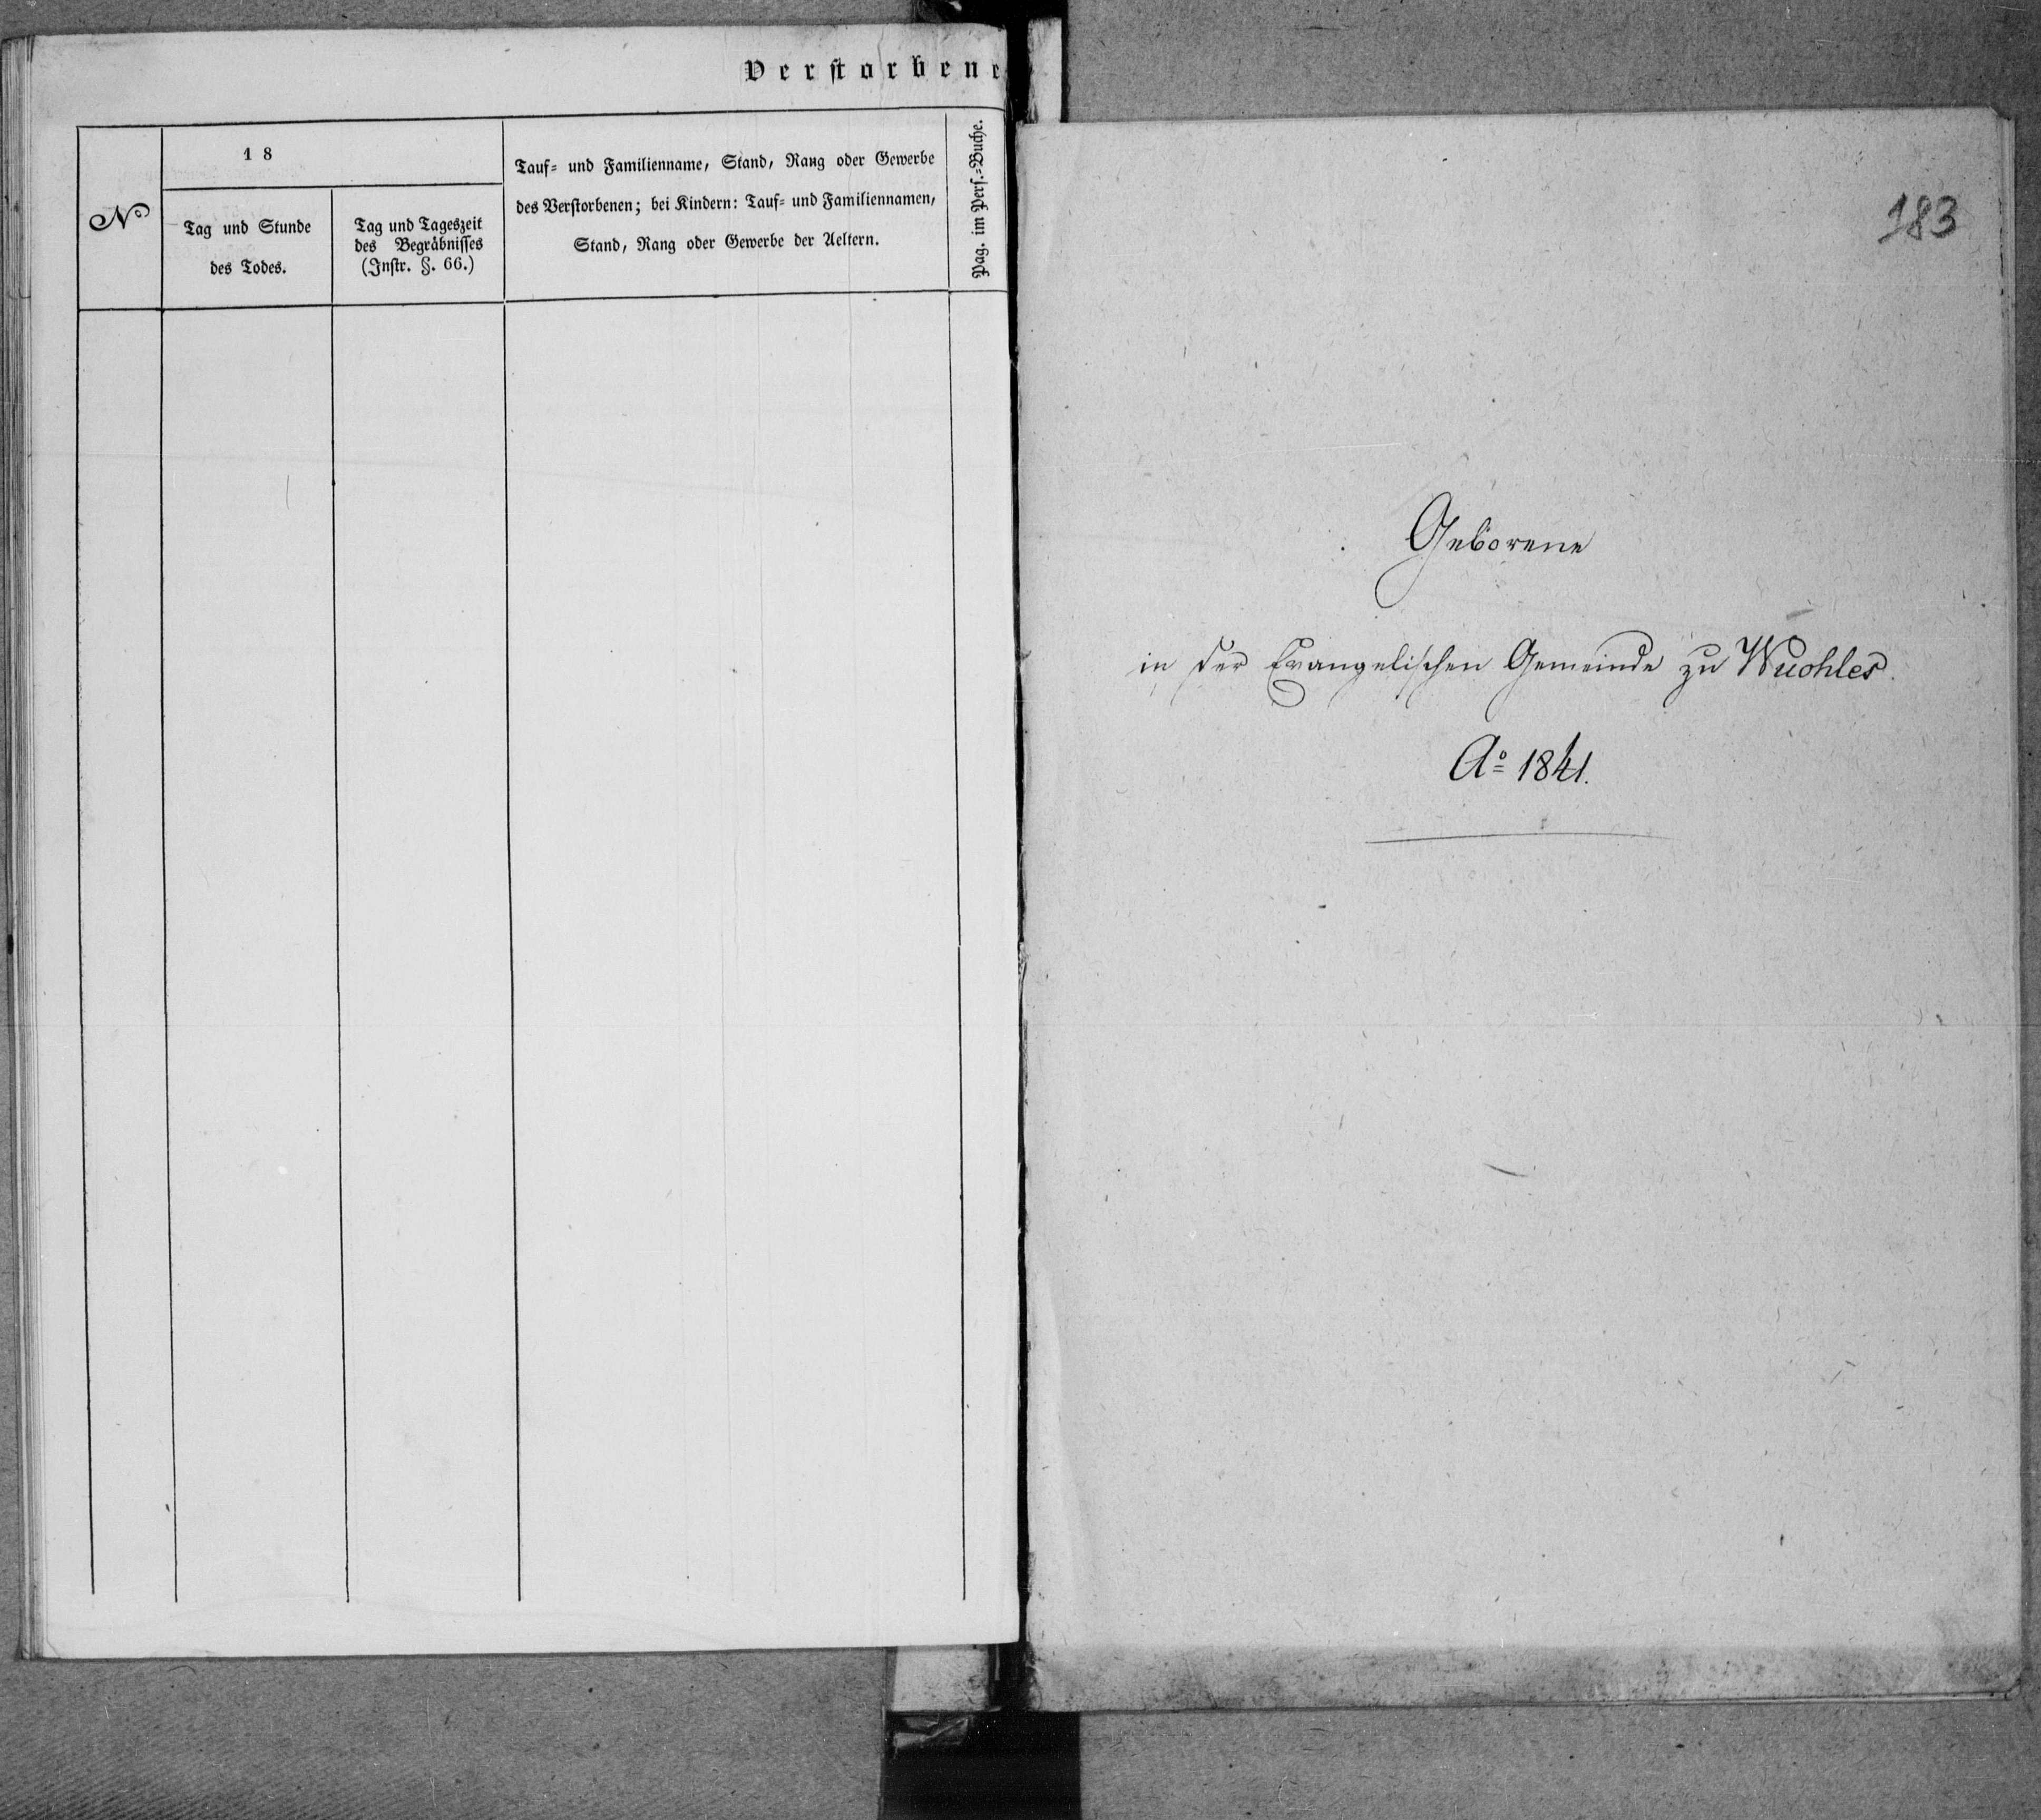 Verstorbene
№
18
Tag und Stunde
des Todes.
Tag und Tageszeit
des Begräbnisses
(Instr. §. 66.)
Tauf= und Familienname, Stand, Rang oder Gewerbe
des Verstorbenen; bei Kindern: Tauf= und Familiennamen,
Stand, Rang oder Gewerbe der Aeltern.
Pag. im Pers.=Buche.
183
Geborene
in der Evangelischen Gemeinde zu Wuohles.
Aº 1841.